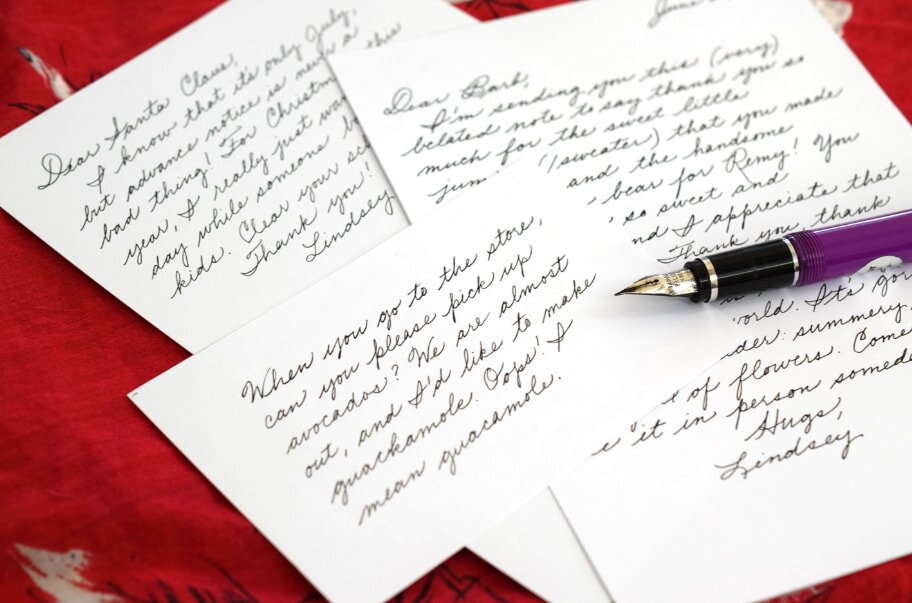 Dear Santa Claus,
I know that it's only July,
but advance notice is never a
bad thing! For Christmas this
year, I really just
day while someone
kids. Clear your
Thank you!
Lindsey
June
Dear Barb,
I'm sending you this (very)
belated note to say thank you so
much for the sweet little
(sweater) that you made
and the handsome
bear for Remy! You
so sweet and
and I appreciate that
Thank you, thank
It's
summery,
of flowers. Come
it in person
Hugs,
Lindsey
When you go to the store,
can you please pick up
avocados? We are almost
out, and I'd like to make
guackamole. Oops! I
mean guacamole.